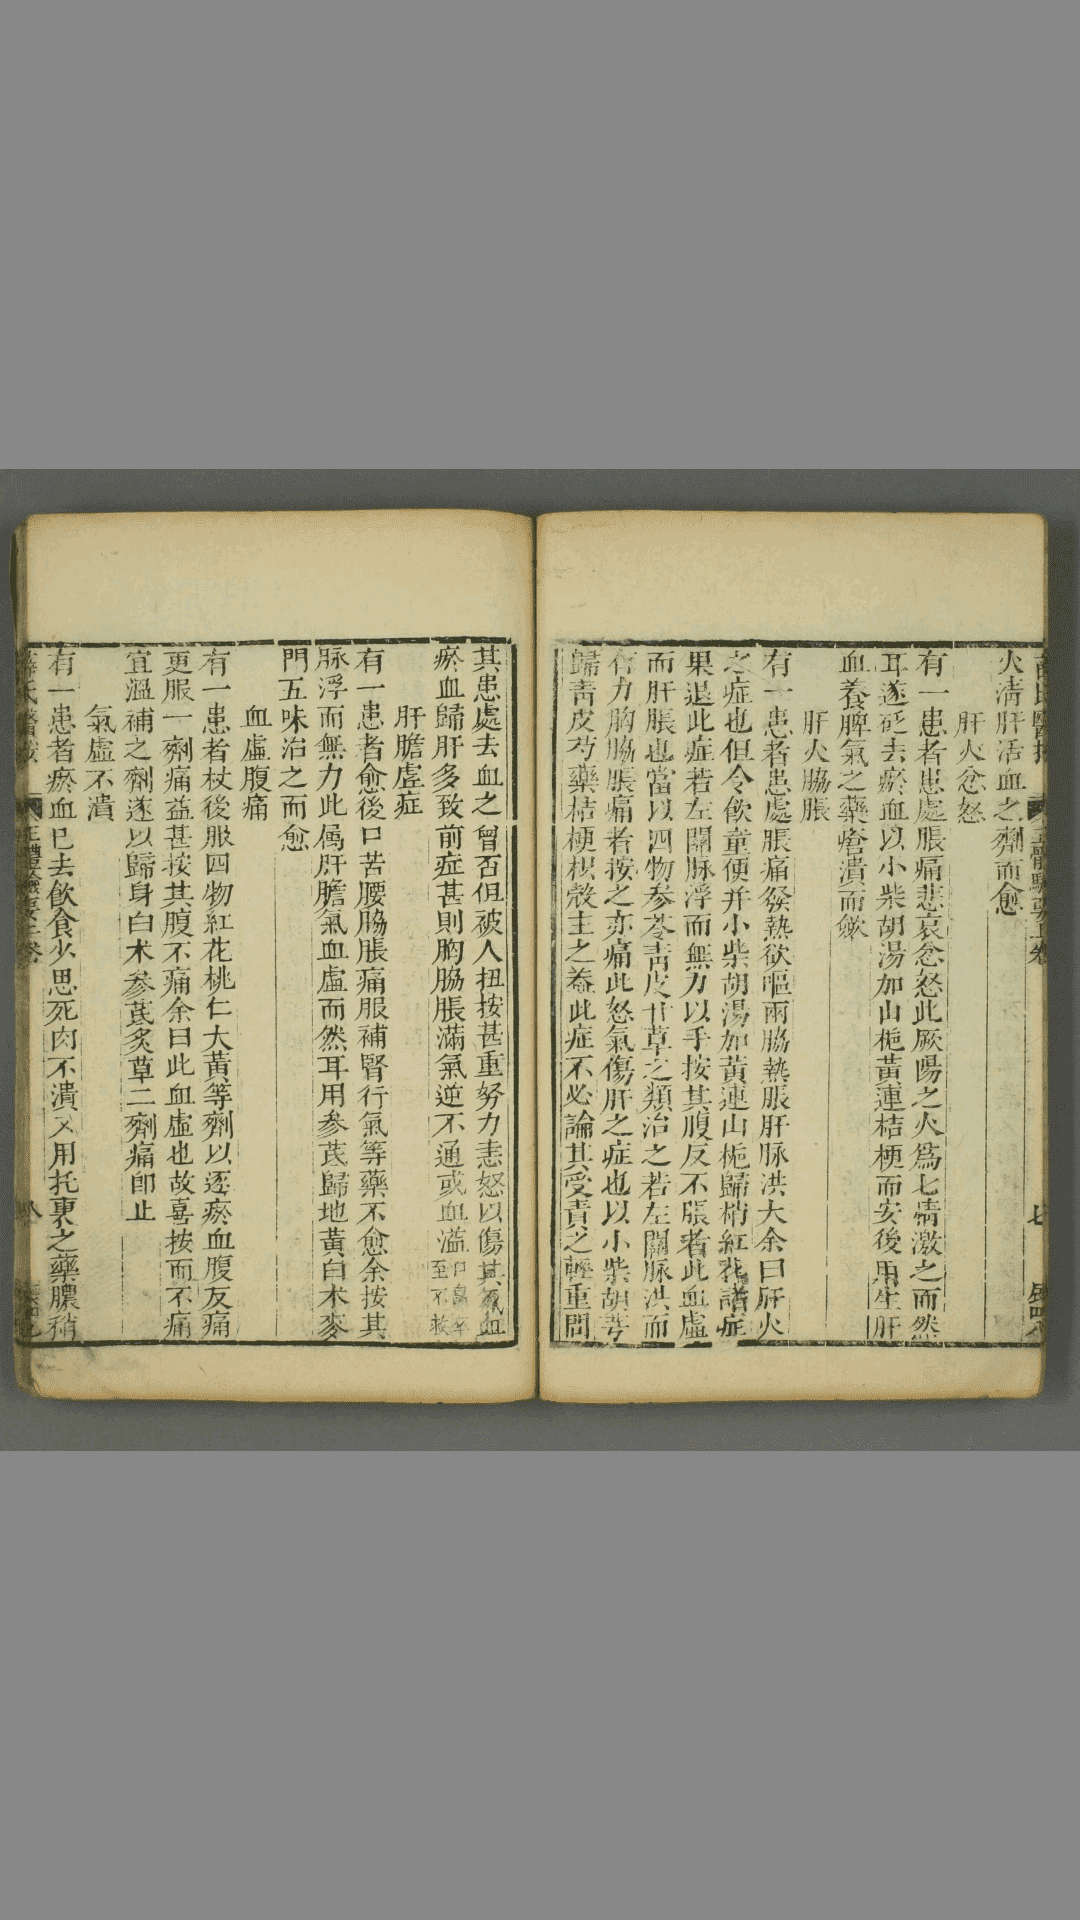 火清肝活血之劑而愈
肝火忿怒
有一患者患處脹痛悲哀忿怒此厥陽之火爲七情激之而然
耳遂砭去瘀血以小柴胡湯加山梔黃連桔梗而安後用生肝
血養脾氣之藥瘡潰而斂
肝火脇脹
有一患者患處脹痛發熱欲嘔兩脇熱脹肝脉洪大余曰肝火
之症也但令飲童便并小柴胡湯加黃連山梔歸梢紅花諸症
果退此症若左關脉浮而無力以手按其腹反不脹者此血虛
而肝脹也當以四物參苓靑皮甘草之類治之若左關脉洪而
有力胸脇脹痛者按之亦痛此怒氣傷肝之症也以小柴胡芎
歸靑皮芍藥桔梗枳殼主之葢此症不必論其受責之輕重問
其患處去血之曾否但被人扭按甚重努力恚怒以傷其氣血
瘀血歸肝多致前症甚則胸脇脹滿氣逆不通或血溢口鼻卒至不救
肝膽虛症
有一患者愈後口苦腰脇脹痛服補腎行氣等藥不愈余按其
脉浮而無力此属肝膽氣血虛而然耳用參芪歸地黃白术麥
門五味治之而愈
血虛腹痛
有一患者杖後服四物紅花桃仁大黃等劑以逐瘀血腹反痛
更服一劑痛益甚按其腹不痛余曰此血虛也故喜按而不痛
宜溫補之劑遂以歸身白术參芪炙草二劑痛卽止
氣虛不潰
有一患者瘀血已去飲食少思死肉不潰又用托裏之藥膿稍